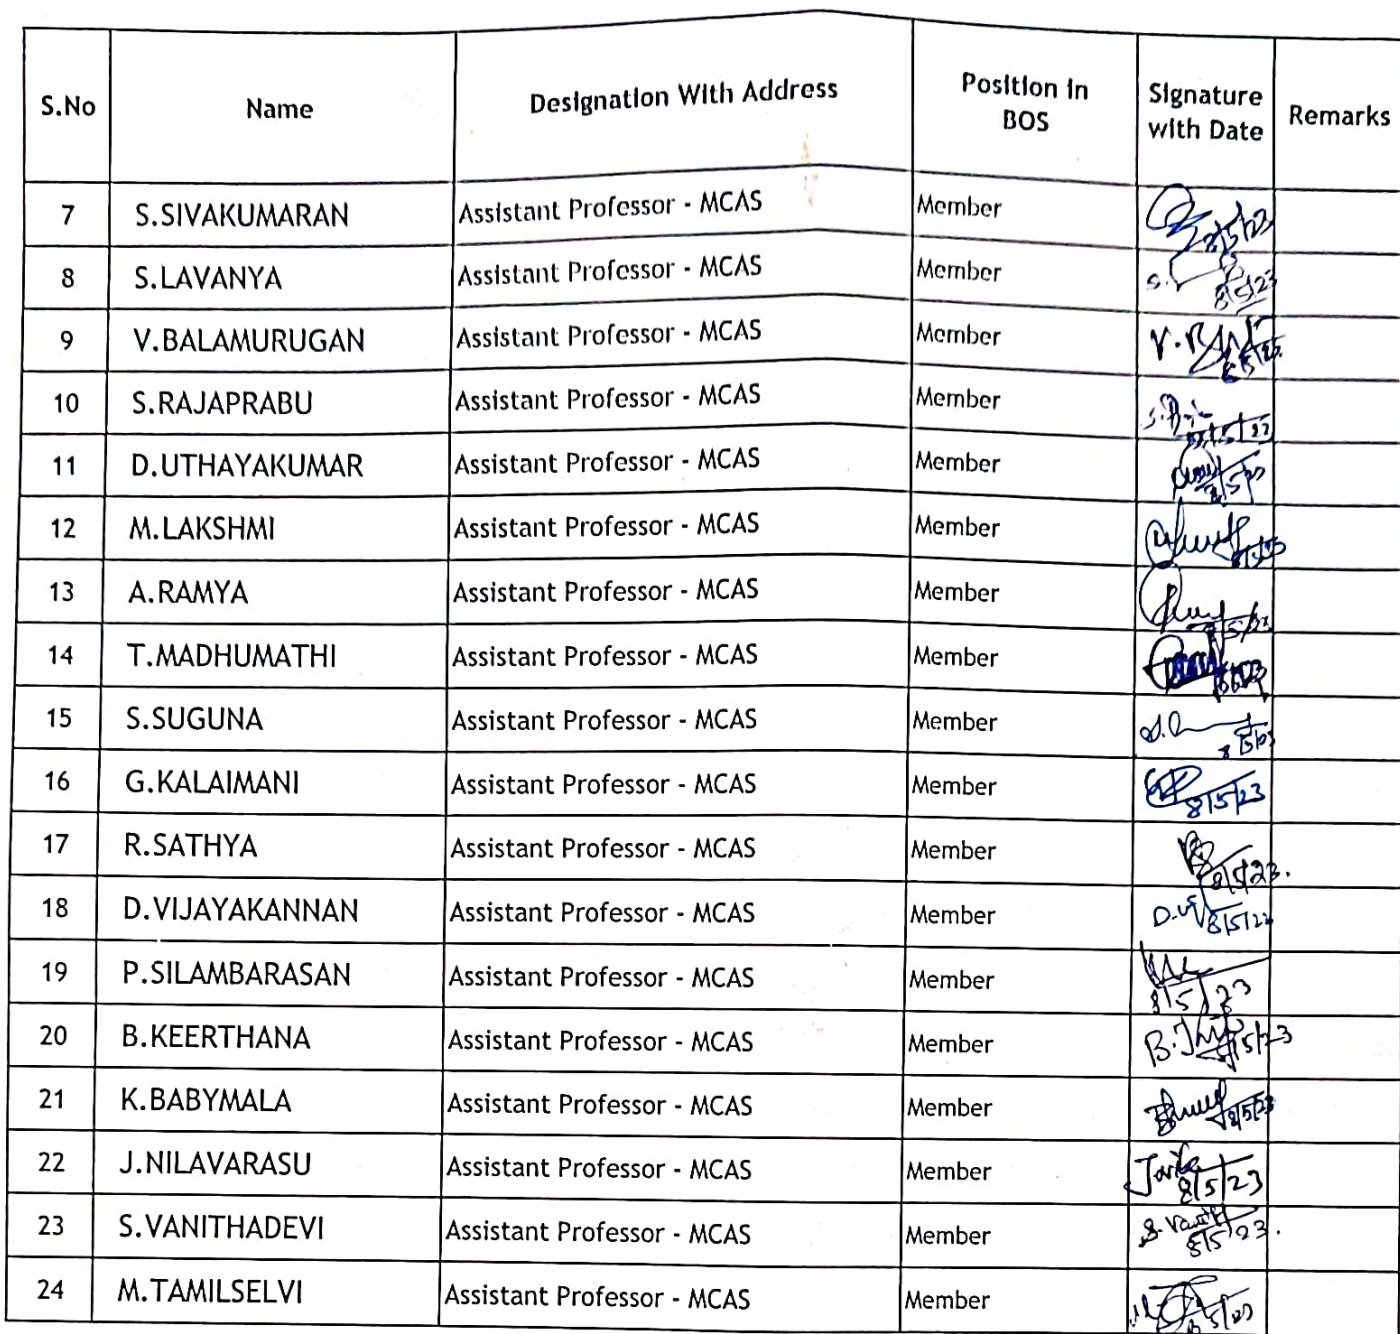 S.No Name Designation With Address Position in BOS Signature with Date Remarks
7 S.SIVAKUMARAN Assistant Professor - MCAS Member 8/5/23
8 S.LAVANYA Assistant Professor - MCAS Member S. 8/5/23
9 V.BALAMURUGAN Assistant Professor - MCAS Member 8/5/23
10 S.RAJAPRABU Assistant Professor - MCAS Member
11 D.UTHAYAKUMAR Assistant Professor - MCAS Member 8/5/23
12 M.LAKSHMI Assistant Professor - MCAS Member 8/5/23
13 A.RAMYA Assistant Professor - MCAS Member 8/5/23
14 T.MADHUMATHI Assistant Professor - MCAS Member
15 S.SUGUNA Assistant Professor - MCAS Member 8/5/23
16 G.KALAIMANI Assistant Professor - MCAS Member 8/5/23
17 R.SATHYA Assistant Professor - MCAS Member 8/5/23.
18 D.VIJAYAKANNAN Assistant Professor - MCAS Member 8/5/23
19 P.SILAMBARASAN Assistant Professor - MCAS Member 8/5/23
20 B.KEERTHANA Assistant Professor - MCAS Member 8/5/23
21 K.BABYMALA Assistant Professor - MCAS Member 8/5/23
22 J.NILAVARASU Assistant Professor - MCAS Member 8/5/23
23 S.VANITHADEVI Assistant Professor - MCAS Member 8/5/23.
24 M.TAMILSELVI Assistant Professor - MCAS Member 8/5/23